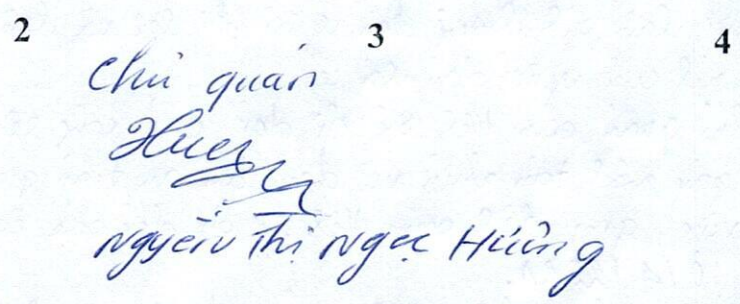 2 3 4
Chủ quán
Nguyễn Thị Ngọc Hương